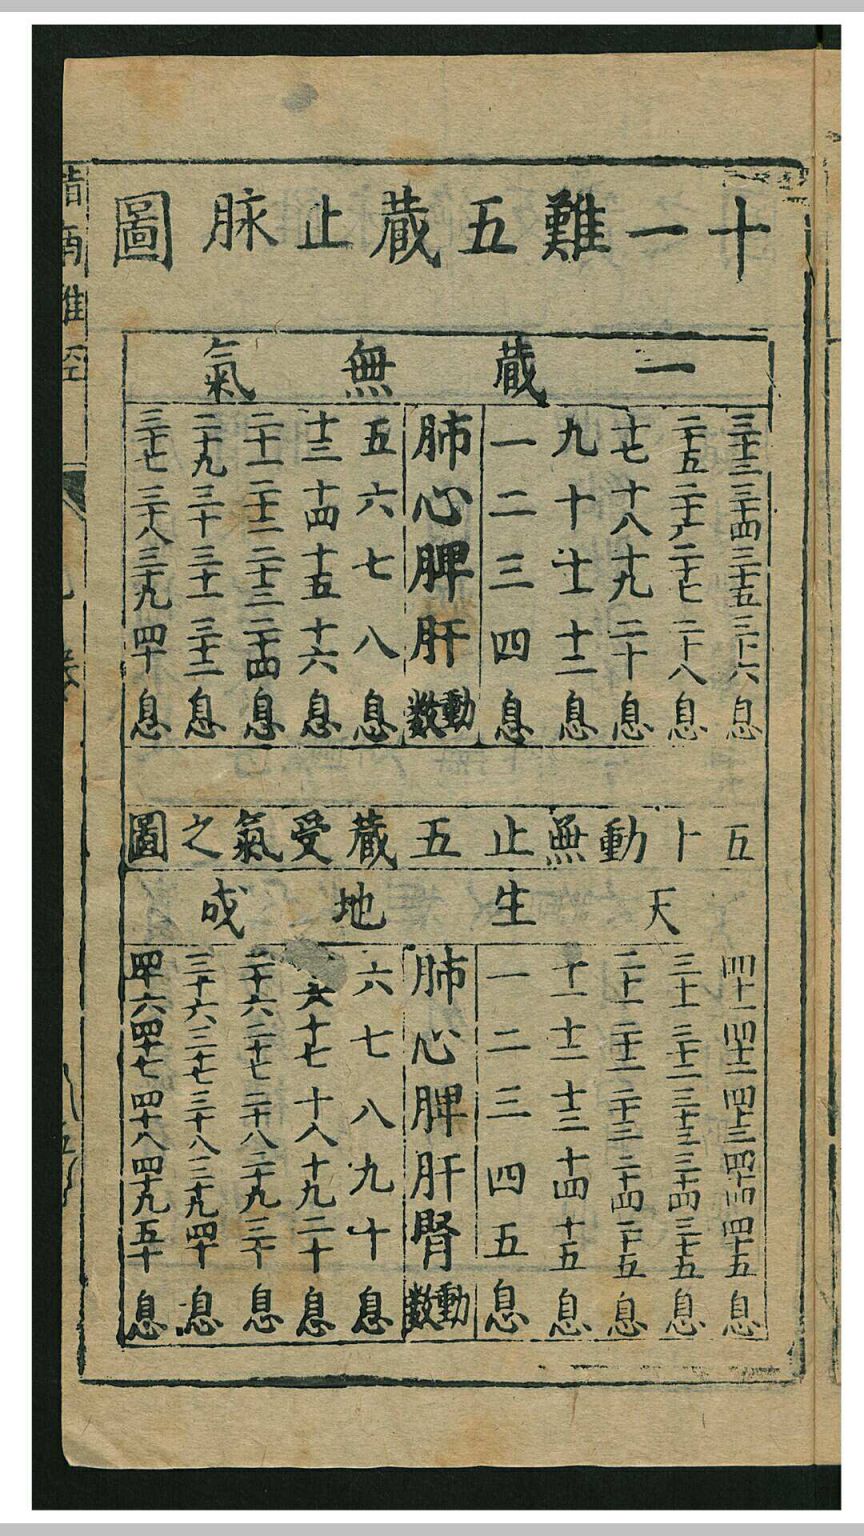 十一難五藏止脉圖
一藏無氣
三十三 三十四 三十五 三十六 息
二十五 二十六 二十七 二十八 息
十七 十八 十九 二十 息
九 十 十一 十二 息
一 二 三 四 息
肺 心 脾 肝 動數
五 六 七 八 息
十三 十四 十五 十六 息
二十一 二十二 二十三 二十四 息
二十九 三十 三十一 三十二 息
三十七 三十八 三十九 四十 息
五十動無止五藏受氣之圖
天生地成
四十一 四十二 四十三 四十四 四十五 息
三十一 三十二 三十三 三十四 三十五 息
二十一 二十二 二十三 二十四 二十五 息
十一 十二 十三 十四 十五 息
一 二 三 四 五 息
肺 心 脾 肝 腎 動數
六 七 八 九 十 息
十六 十七 十八 十九 二十 息
二十六 二十七 二十八 二十九 三十 息
三十六 三十七 三十八 三十九 四十 息
四十六 四十七 四十八 四十九 五十 息